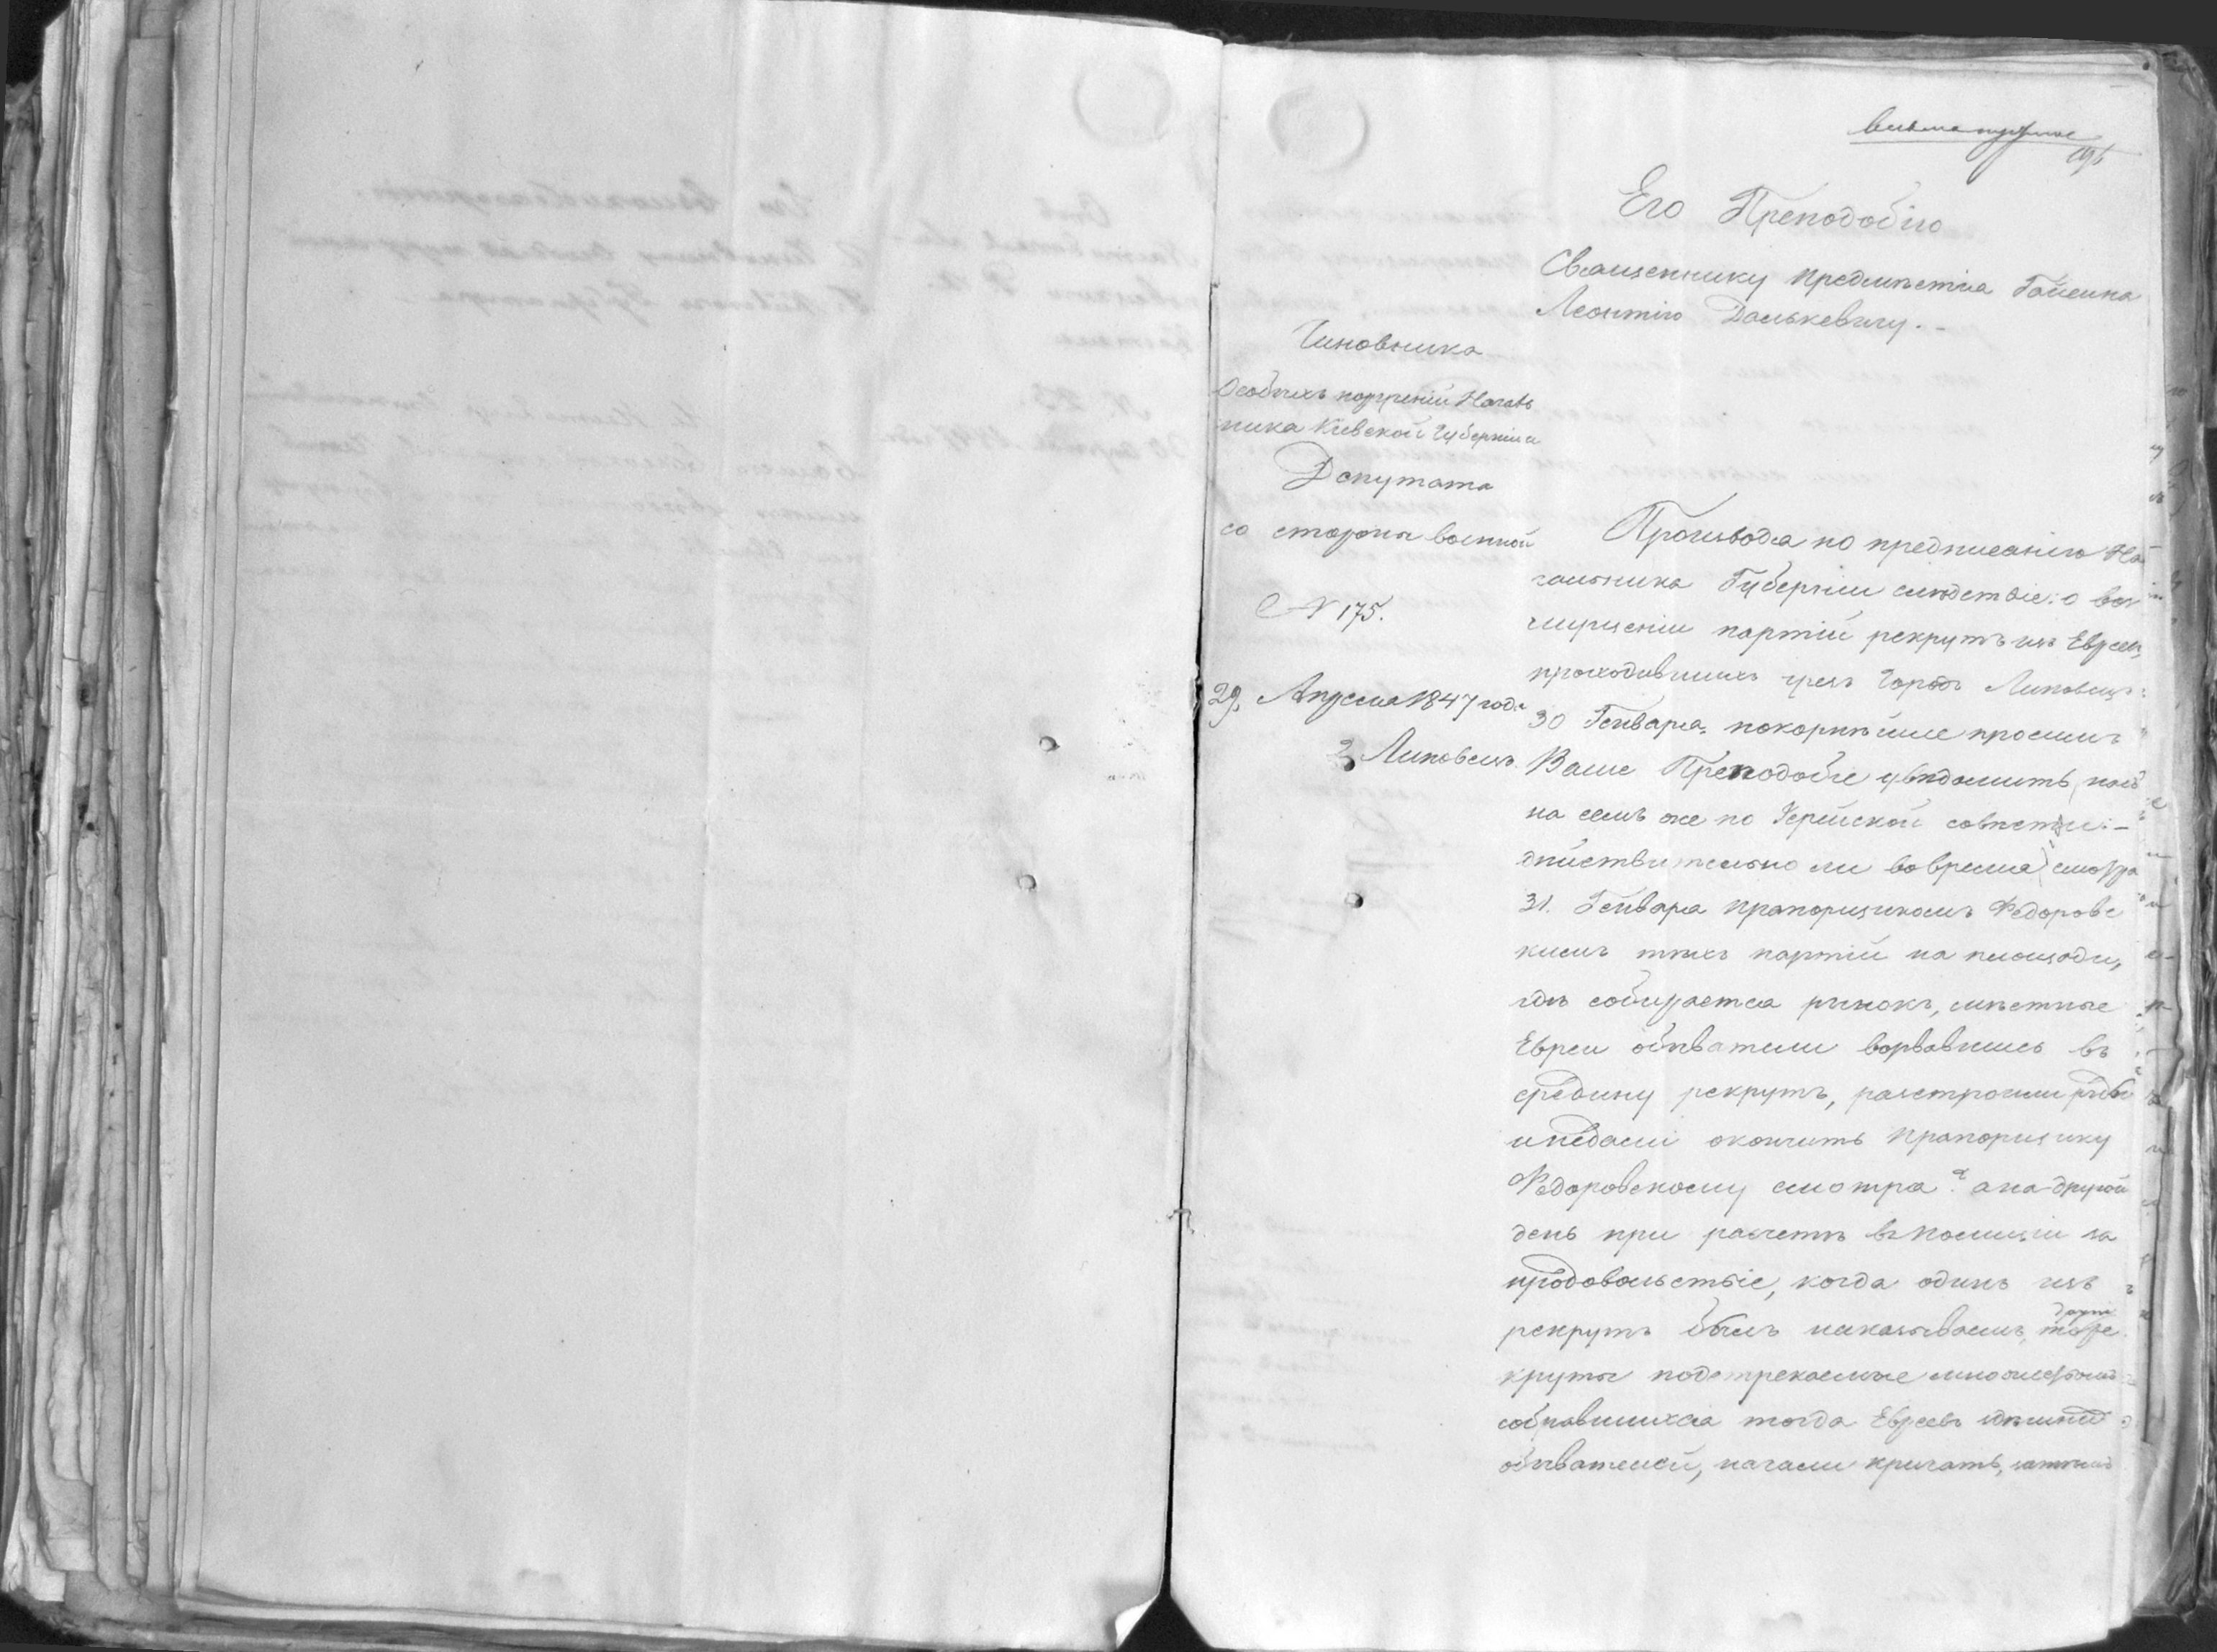 Его Преподобію
Священнику предмѣстія Гайсина
Леонтію Далькевичу. –
Чиновника
Особыхъ порученій Началь
ника Кіевской Губерніи
Депутата
со стороны военной
№ 175.
29, Апреля 1847 года
г Липовецъ.
Производя по предписанію На
чальника Губерніи слѣдствіе: о воз
мущеніи партіи рекрутъ изъ Евреевъ,
проходившихъ чрезъ Городъ Липовецъ:
30 Генваря, покорнѣйше просимъ
Ваше Преподобіе увѣдомить,
на семъ же по Іерейской совѣсти: –
дѣйствительно ли во время смотра
31. Генваря Прапорщикомъ Федоровс
кимъ тѣхъ партій на площади,
гдѣ собирается рынокъ, мѣстные
Евреи обыватели ворвавшись въ
средину рекрутъ, разстроили ряды
и недали окончить Прапорщику
Федоровскому смотра? а на другой
день при расчетѣ въ Полиціи за
продовольствіе, когда одинъ изъ
рекрутъ былъ наказываемъ, то ре
круты подстрекаемые множествомъ
собравшихся тогда Евреевъ
обывателей, начали кричать,